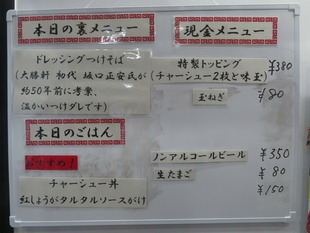 本日の裏メニュー
ドレッシングつけそば
(大勝軒 初代 坂口正安氏が
約50年前に考案、
温かいつけダレです)
本日のごはん
おすすめ!
チャーシュー丼
紅しょうがタルタルソースがけ
現金メニュー
特製トッピング ¥380
(チャーシュー2枚と味玉)
玉ねぎ ¥80
ノンアルコールビール ¥350
生たまご ¥80
¥150